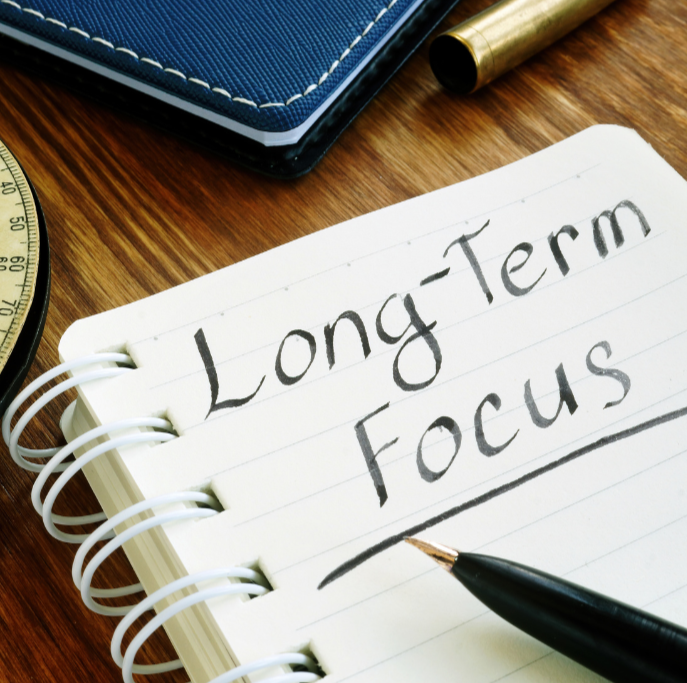 Long-Term
Focus
40
50
60
70